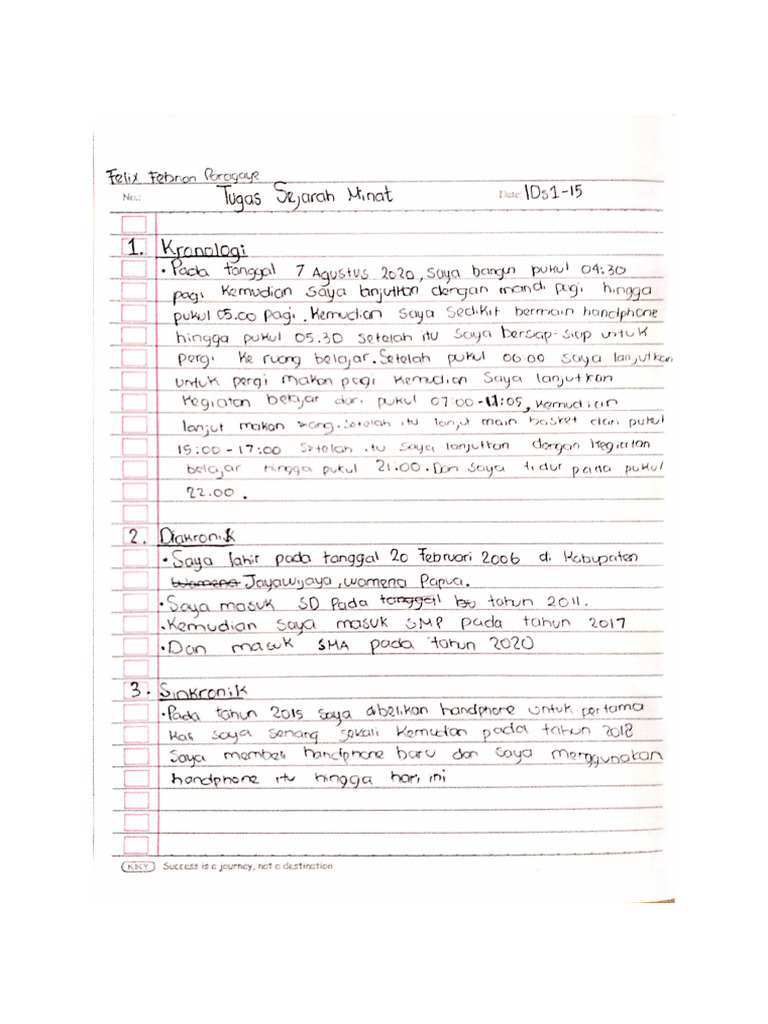 Felix Febrian Paragaye
No.: Tugas Sejarah Minat Date: IDS1-15
1. Kronologi
• Pada tanggal 7 Agustus 2020, saya bangun pukul 04:30
pagi kemudian saya lanjutkan dengan mandi pagi hingga
pukul 05.00 pagi. Kemudian saya sedikit bermain handphone
hingga pukul 05.30 setelah itu saya bersiap-siap untuk
pergi ke ruang belajar. Setelah pukul 06:00 saya lanjutkan
untuk pergi makan pagi kemudian saya lanjutkan
kegiatan belajar dari pukul 07:00-11:05, kemudian
lanjut makan siang. Setelah itu lanjut main basket dari pukul
15:00-17:00 setelah itu saya lanjutkan dengan kegiatan
belajar hingga pukul 21.00. Dan saya tidur pada pukul
22.00.
2. Diakronik
• Saya lahir pada tanggal 20 Februari 2006 di Kabupaten
Wamena Jayawijaya, Wamena Papua.
• Saya masuk SD Pada tanggal tahun 2011.
• Kemudian saya masuk SMP pada tahun 2017
• Dan masuk SMA pada tahun 2020
3. Sinkronik
• Pada tahun 2015 saya dibelikan handphone untuk pertama
kas saya senang sekali kemudan pada tahun 2018
saya membeli handphone baru dan saya menggunakan
handphone itu hingga hari ini
KKY Success is a journey, not a destination